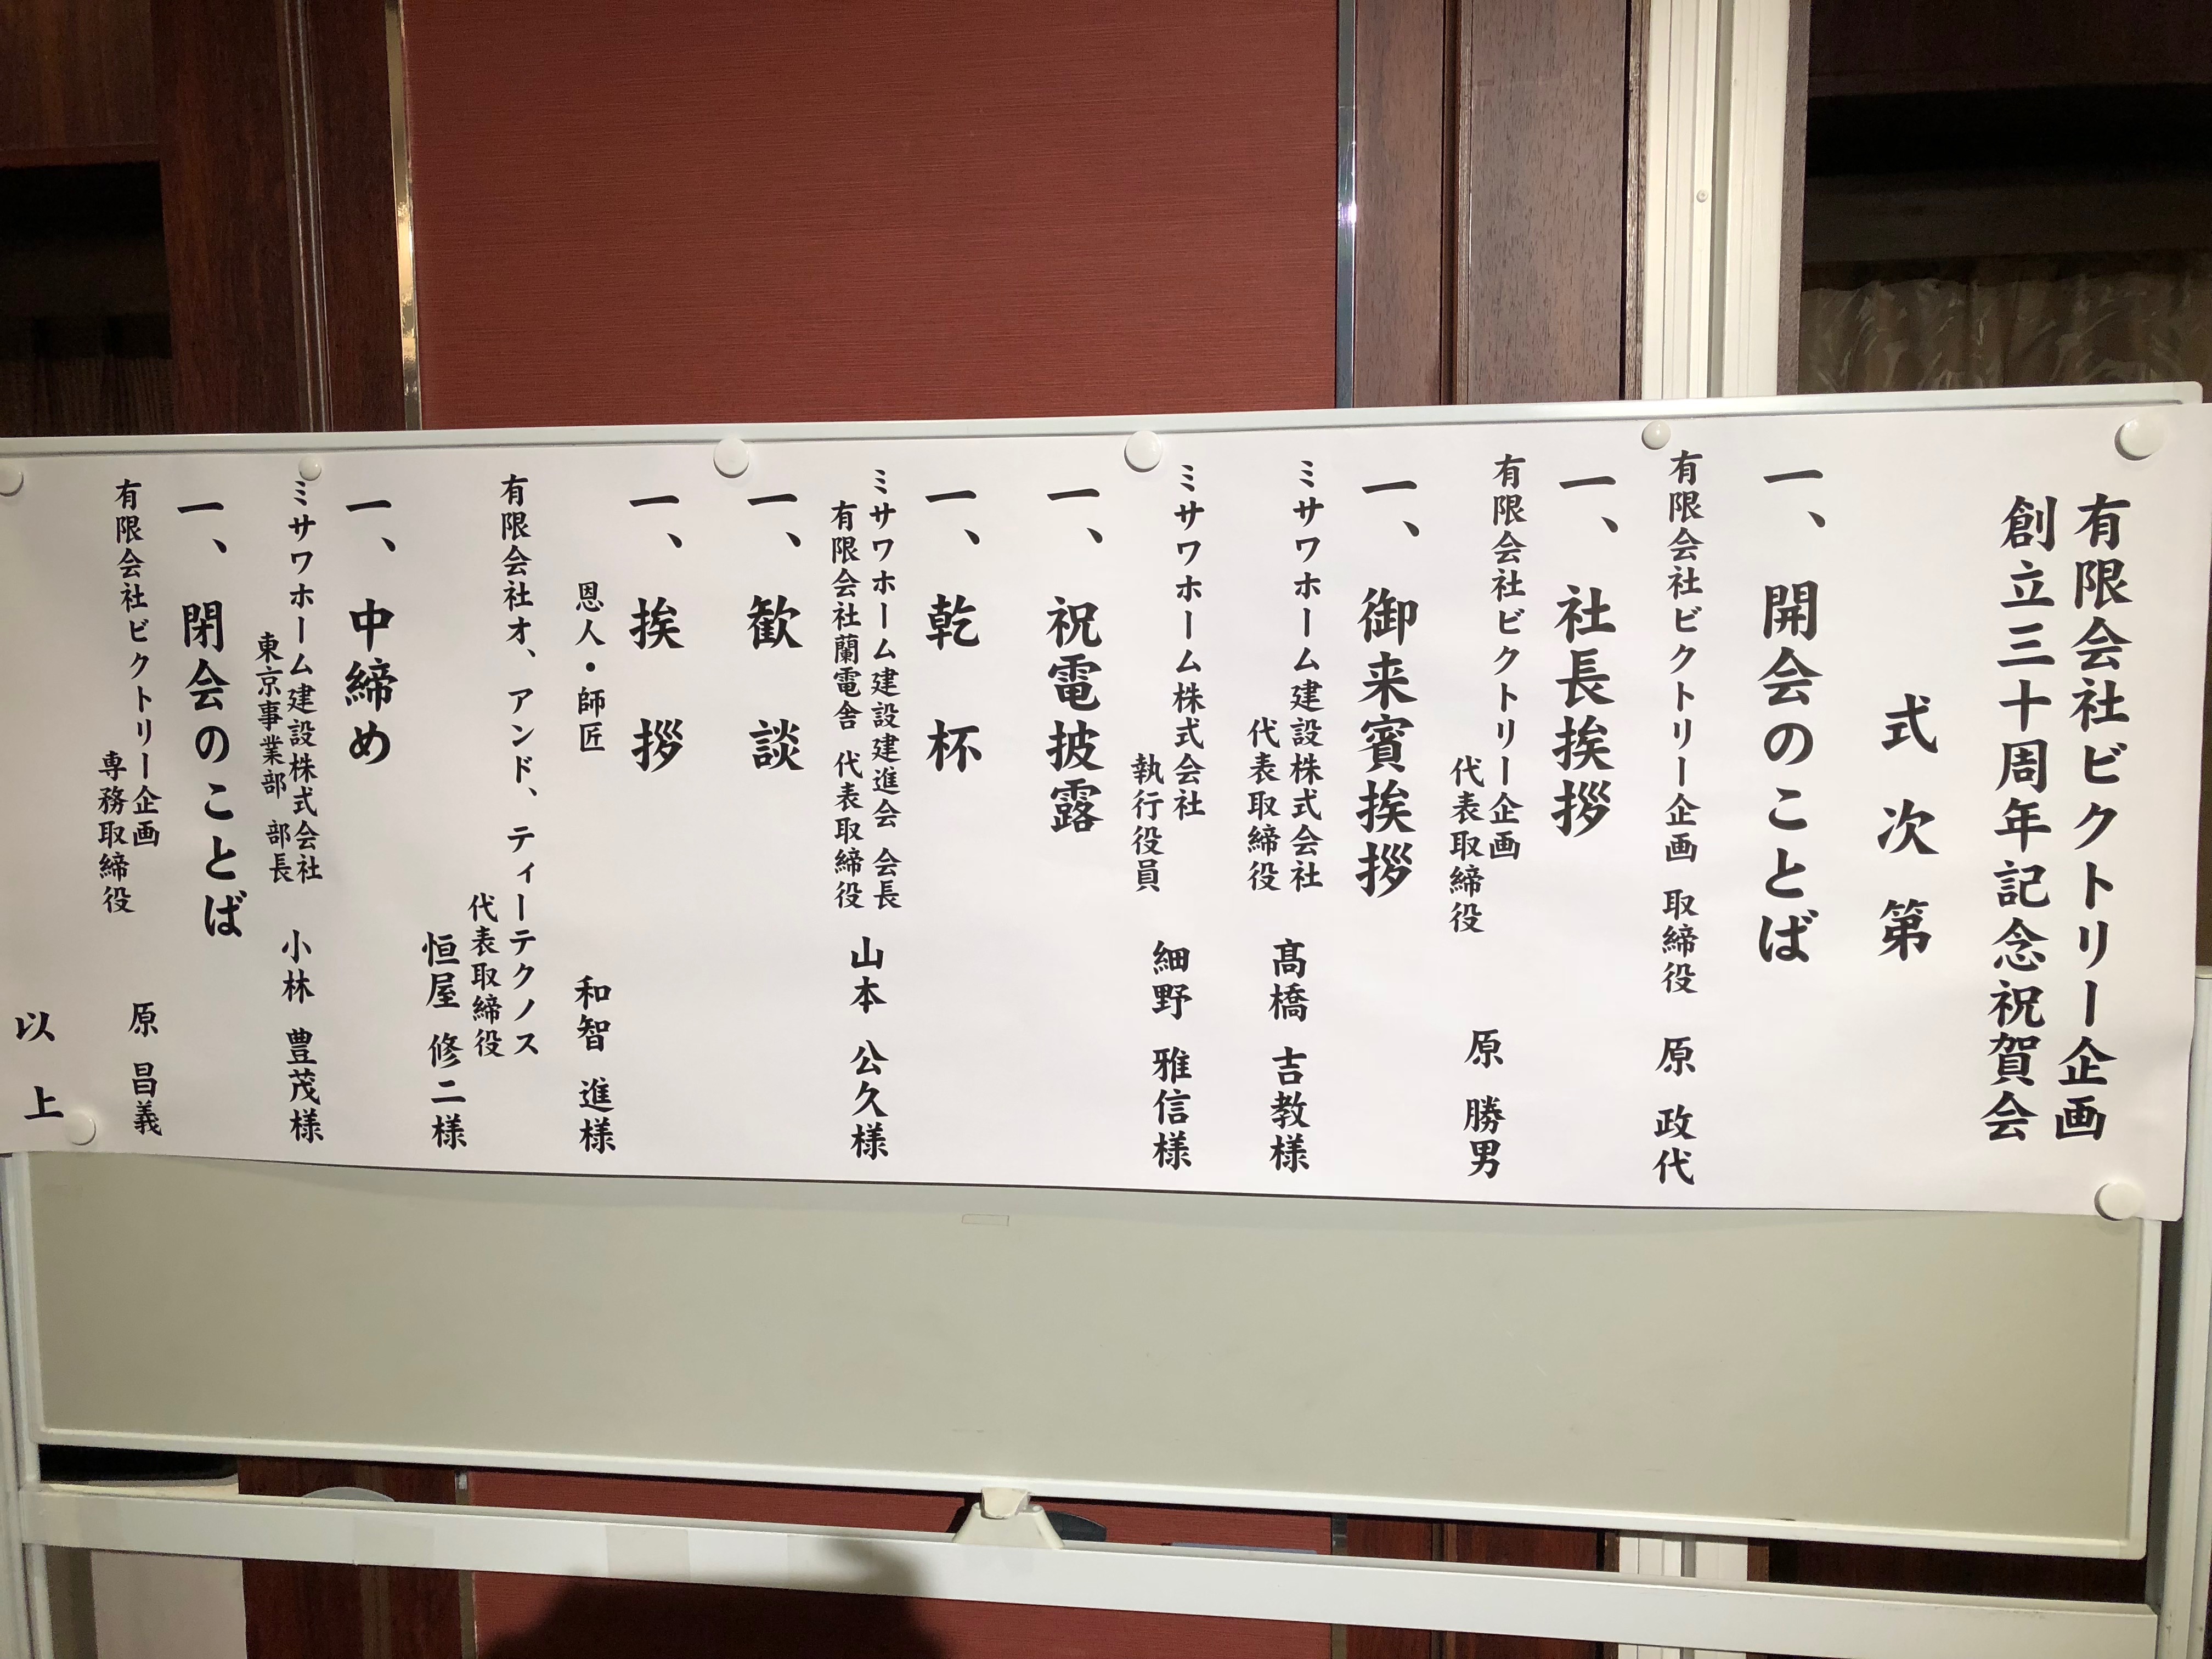 有限会社ビクトリー企画
創立三十周年記念祝賀会
式次第
一、開会のことば
有限会社ビクトリー企画 取締役 原 政代
一、社長挨拶
有限会社ビクトリー企画
代表取締役 原 勝男
一、御来賓挨拶
ミサワホーム建設株式会社
代表取締役 髙橋 吉教様
ミサワホーム株式会社
執行役員 細野 雅信様
一、祝電披露
一、乾杯
ミサワホーム建設建進会 会長
有限会社蘭電舎 代表取締役 山本 公久様
一、歓談
一、挨拶
恩人・師匠 和智 進様
有限会社オ、アンド、ティーテクノス
代表取締役
恒屋 修二様
一、中締め
ミサワホーム建設株式会社
東京事業部 部長 小林 豊茂様
一、閉会のことば
有限会社ビクトリー企画
専務取締役 原 昌義
以上